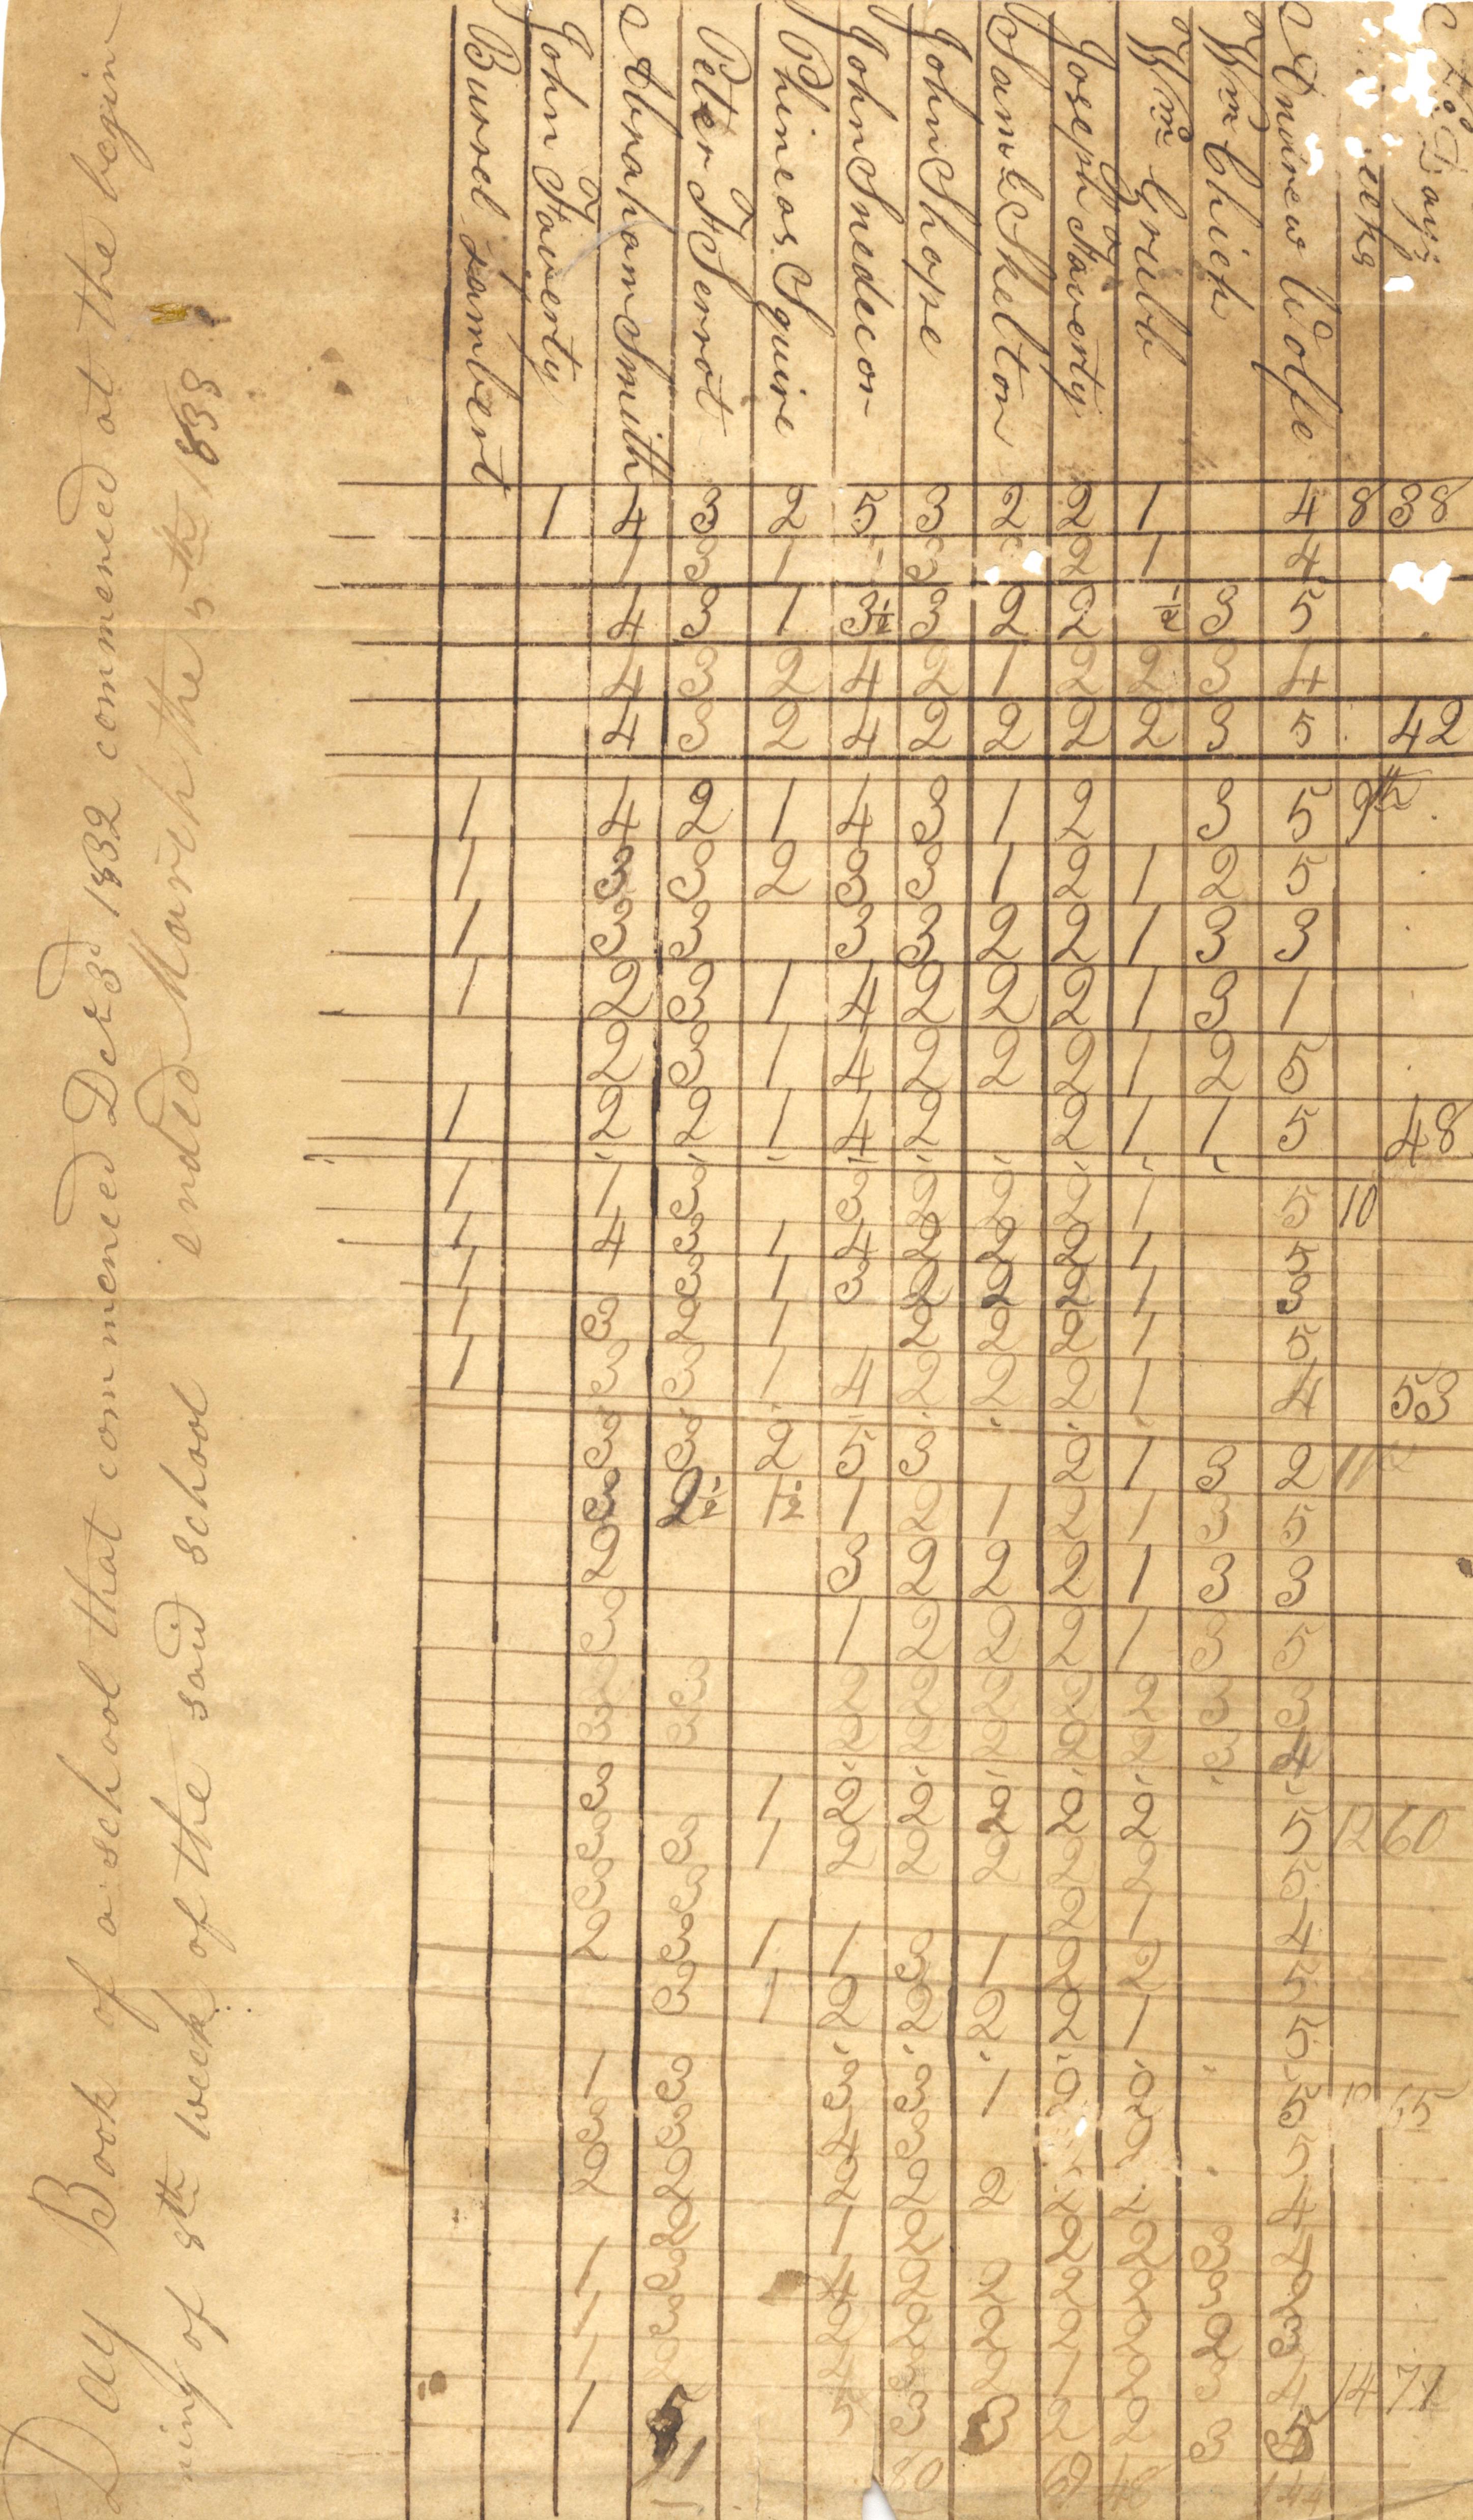 Day Book of a school that commenced Decr 3d 1832 commenced at the begin
ning of 8th week of the said school ended March the 5th 1833
Burrel Lambert
John Faverty
Abraham Smith
Peter Serrot
Phineas Squire
John Snedecor
John Shope
Saml Skelton
Joseph Faverty
Wm Grubb
Wm Chich
Andrew Wolfe
Days
1 4 3 2 5 3 2 2 1 4 8 38
1 3 1 3 2 1 4
4 3 1 3½ 3 2 2 ½ 3 5
4 3 2 4 2 1 2 2 3 4
4 3 2 4 2 2 2 2 3 5 42
1 4 2 1 4 3 1 2 3 5 9th
1 3 3 2 3 3 1 2 1 2 5
1 3 3 3 3 2 2 1 3 3
1 2 3 1 4 2 2 2 1 3 1
2 3 1 4 2 2 2 1 2 5
1 2 2 1 4 2 2 1 1 5 48
1 1 3 3 2 2 2 1 5 10
1 4 3 1 4 2 2 2 1 5
1 3 1 3 2 2 2 1 3
1 3 2 1 2 2 2 1 5
1 3 3 1 4 2 2 2 1 4 53
3 3 2 5 3 2 1 3 2 11
3 2½ 1½ 1 2 1 2 1 3 5
2 3 2 2 2 1 3 3
3 1 2 2 2 1 3 5
3 3 2 2 2 2 2 3 3
3 3 2 2 2 2 2 3 4
3 1 2 2 2 2 2 5 12 60
3 3 1 2 2 2 2 2 5
3 3 2 1 4
2 3 1 1 3 1 2 2 5
3 1 2 2 2 2 1 5
1 3 3 3 1 2 2 5 65
3 3 4 3 2 5
2 2 2 2 2 2 2 4
2 1 2 2 2 3 4
1 3 4 2 2 2 2 3 2
1 3 2 2 2 2 2 2 3
1 2 4 3 2 1 2 3 4 14 71
1 5 5 3 3 2 2 3 5
80 69 48 144